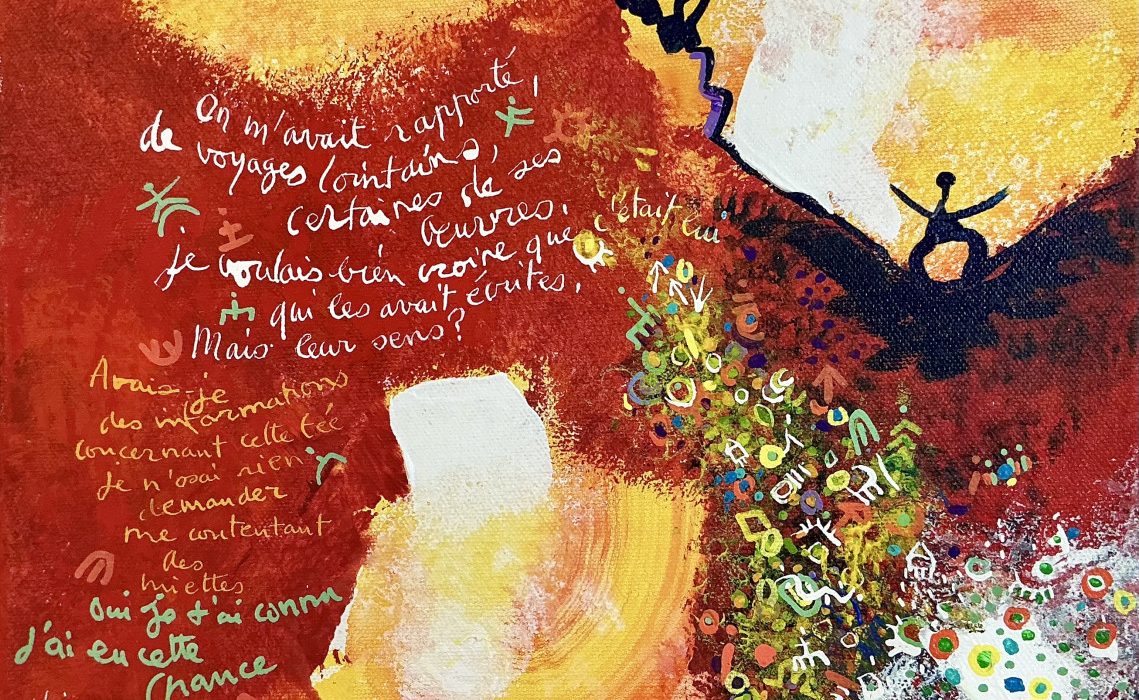 On m'avait rapporté,
de voyages lointains,
certaines de ses
oeuvres.
je voulais bien croire que c'était lui
qui les avait écrites.
Mais leur sens?
Avais-je
des informations
concernant cette
je n'osai rien
demander
me contentant
des
miettes
Oui je t'ai connu
J'ai eu cette
Chance